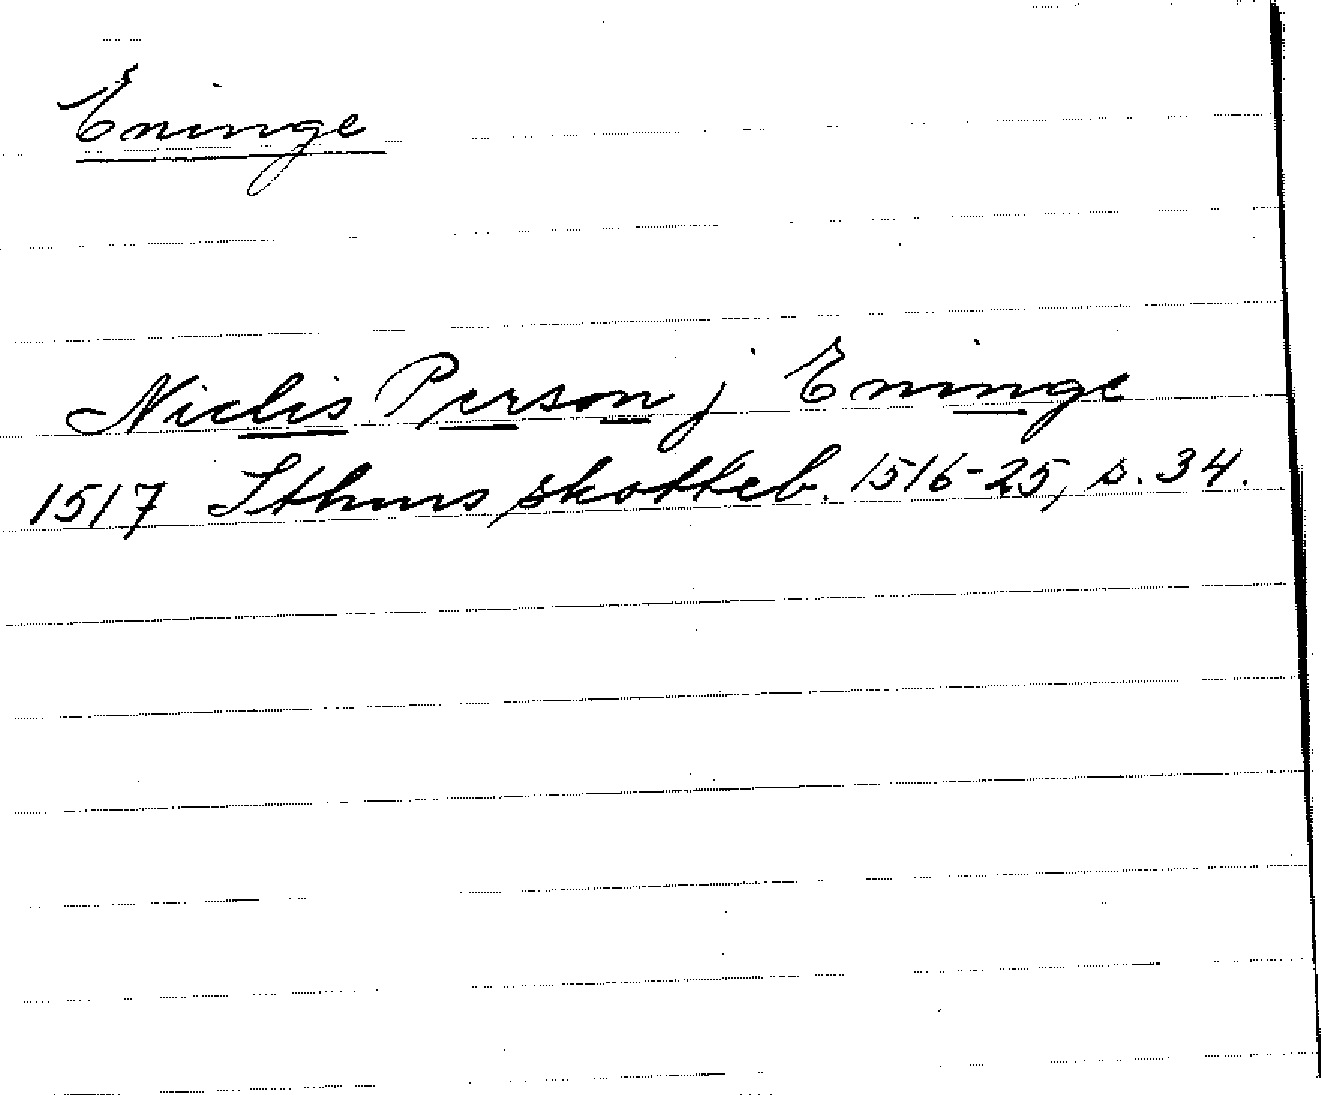 Eninge
Niclis Person j Eninge
1517 Sthms skotteb. 1516-25, s. 34.